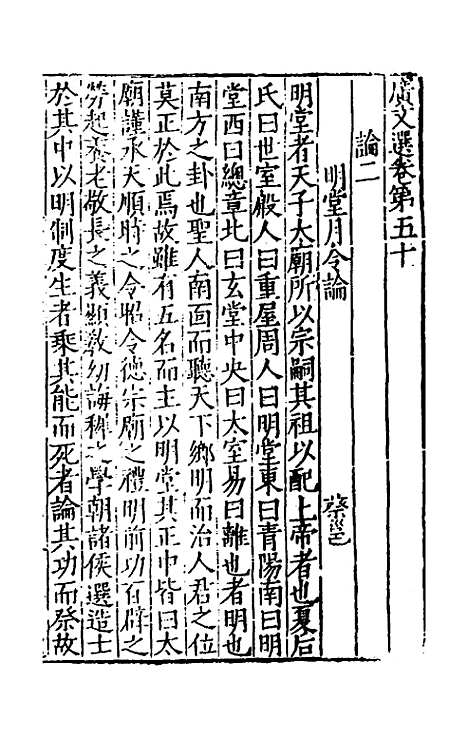 廣文選卷第五十
論二
明堂月令論 蔡邕
明堂者天子大廟所以宗嗣其祖以配上帝者也夏后
氏曰世室殷人曰重屋周人曰明堂東曰青陽南曰明
堂西曰總章北曰玄堂中央曰太室易曰離也者明也
南方之卦也聖人南面而聽天下鄉明而治人君之位
莫正於此焉故雖有五名而主以明堂其正中皆曰太
廟謹承天順時之令昭令德宗廟之禮明前功百辟之
勞起養老敬長之義顯教幼誨稚之學朝諸侯選造士
於其中以明制度生者乘其能而死者論其功而祭故